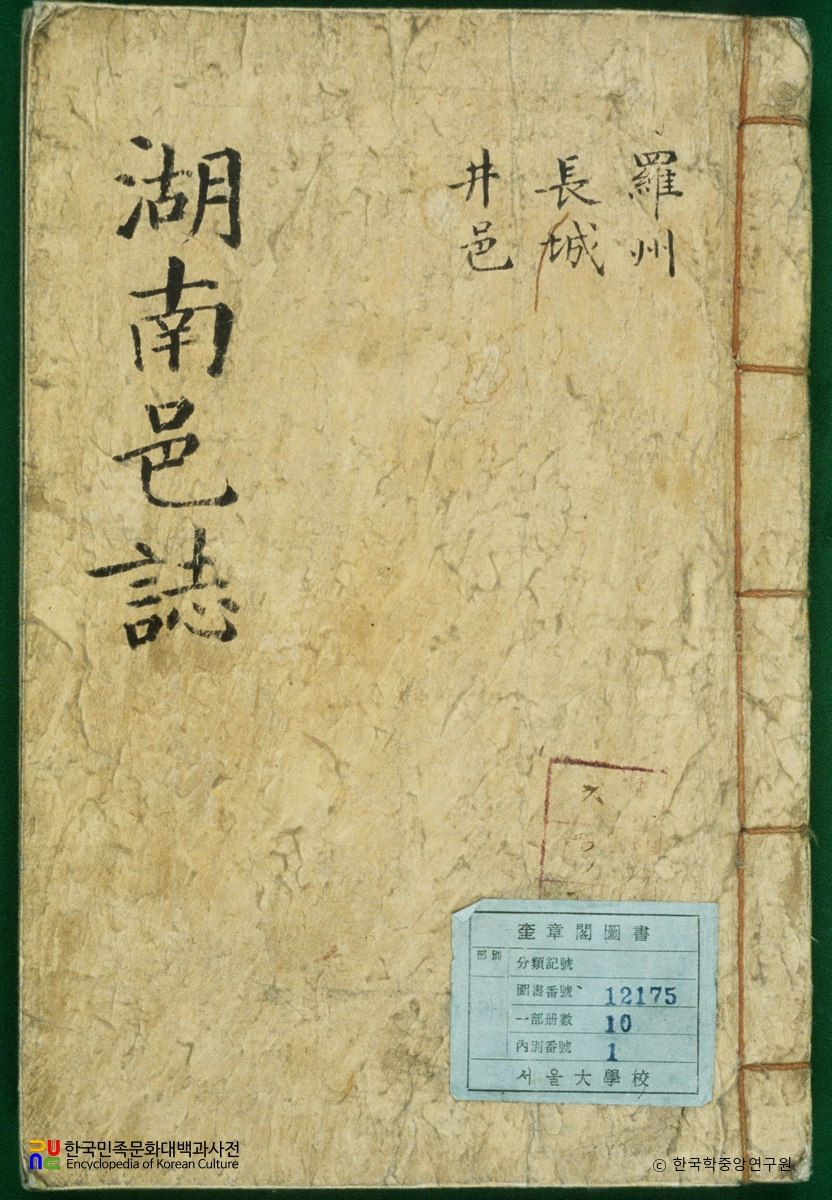 羅州
長城
井邑
湖南邑誌
奎章閣圖書
部別
分類記號
圖書番號 12175
一部册數 10
內別番號 1
서울大學校
한국민족문화대백과사전
Encyclopedia of Korean Culture
© 한국학중앙연구원